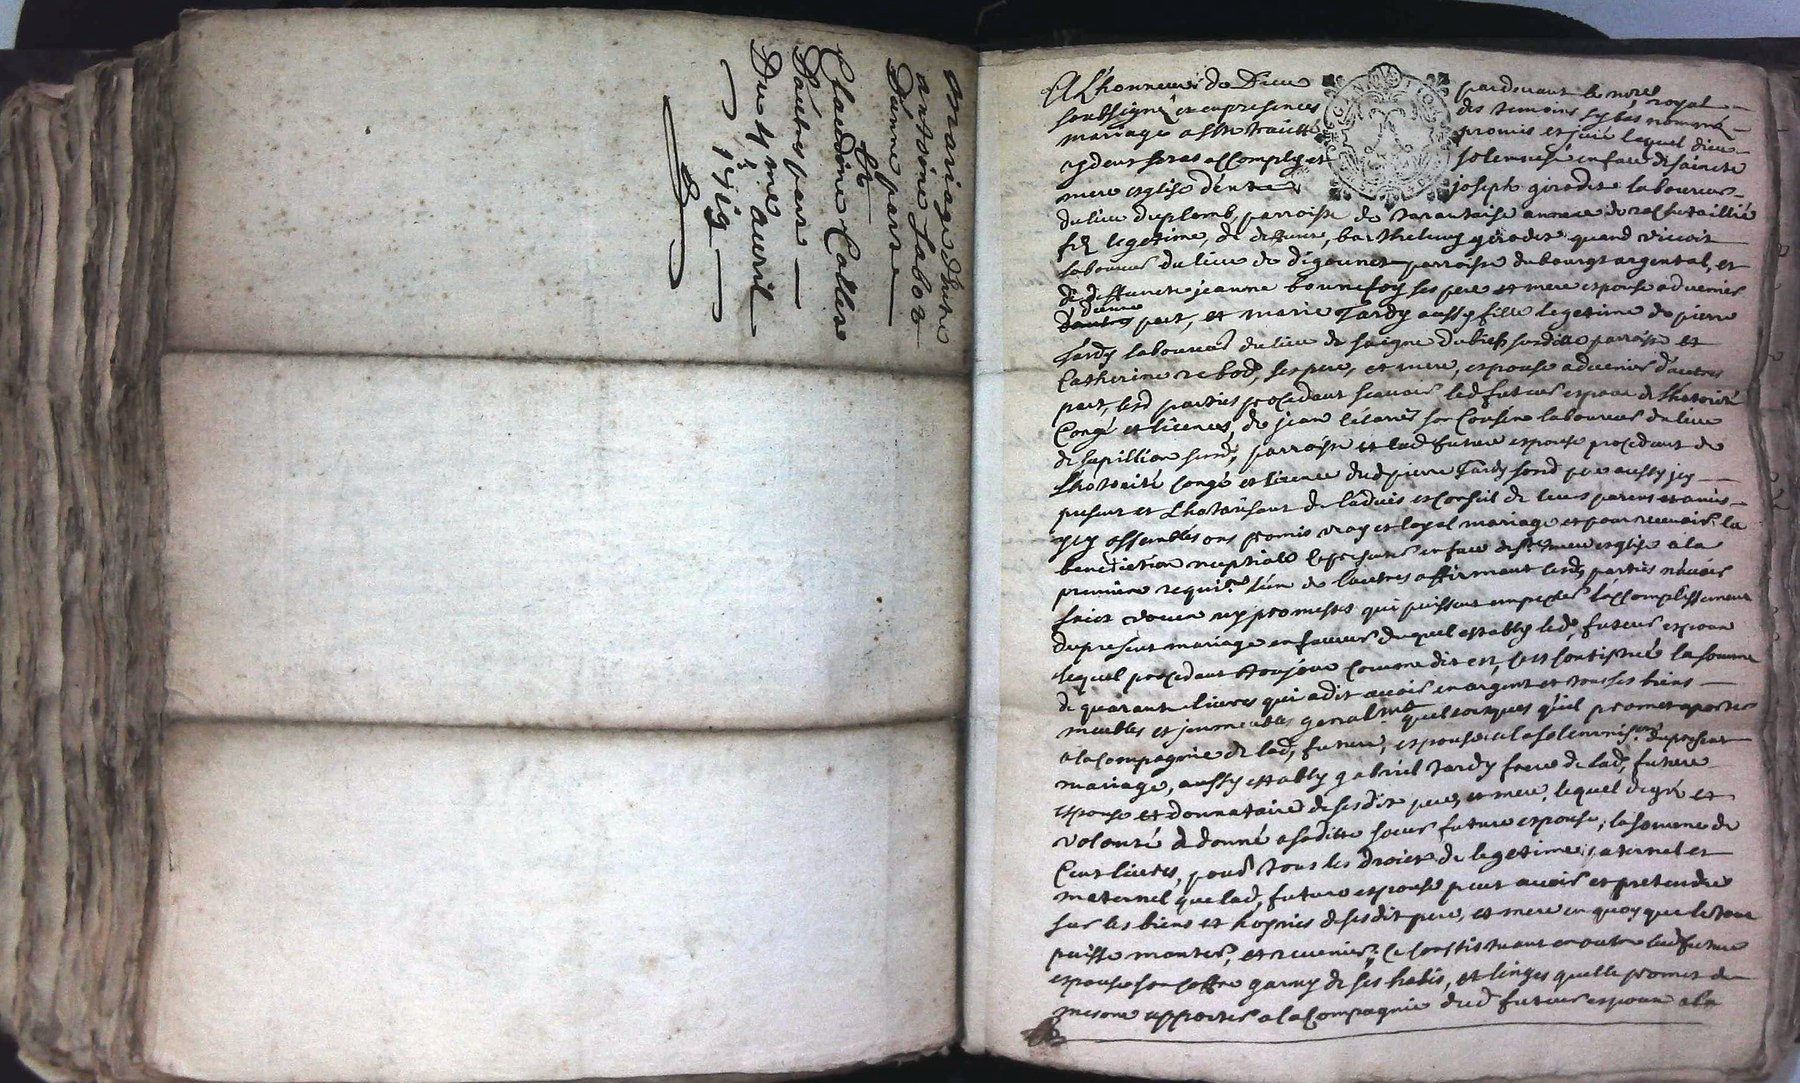 mariage d'entre
antoine Sabot
d'une part
Et
Claudine Collet
d'autre part
Du 4me avril
1719
A L'honneur de Dieu pardevant le no.re royal
soubsigné et en presences des temoins cy bas nommés
mariage a esté traitté promis et juré lequel dieu
aydent seras accomply et solemnisé en face de saincte
mere esglise d'entre joseph girodet laboureur
du lieu du plomb, parroisse de tarantaise annexe de
fils legetime, de deffunct, barthelemy girodet quand vivoit
laboureur du lieu de parroisse du bourgt argental, et
de deffuncte jeanne bonnefoy ses pere et mere espoux advenir
d'une part, et marie Tardy aussy fille legetime de pierre
Tardy laboureur du lieu de parroisse et
Catherine rebod, ses pere, et mere, espouse advenir d'autre
part, lesd parties procedant scavoir led futeur espoux de Lhotorité
Congé et licences, de jean son Cousin laboureur du lieu
de parroisse et lad future espouse procedant de
Lhotorité congé et licence dud pierre Tardy sond pere aussy jcy
present et Lhotorisant de l'advis et conseil de leurs parens et amis
jcy assemblés ont promis vray et loyal mariage et pour recevoir la
benediction nuptialle se presenter en face de ste mere esglise a la
premiere requi.on l'un de lautre affirmant lesd parties n'avoir
faict vœux ny promesses qui puissent empecher l'accomplissement
du present mariage en faveur duquel estably led, futeur espoux
lequel procedant toujour comme dit est, s'est constitué la somme
de quarante livres qui a dit avoir en argent et tous ses biens
meubles et jmmeubles generalmt quelconques qu'il promet aporter
a la compagnie de lad, future, espouse a la solemnis.on du present
mariage, aussy estably gabriel tardy frere de lad, future
espouse et donnataire de sesdit pere, et mere, lequel de gré et
volonté a donné a saditte sœur, future espouse, la somme de
Cent livres, pour tous les droict de legetime paternel et
maternel que lad, future espouse peut avoir et pretendre
sur les biens et hoyries de sesdit pere, et mere en quoy que le tout
puisse monter, et revenir, se constituant en outre lad future
espouse son coffre garny de ses habis, et linges quelle promet de
mesme apporter a la Compagnie dud futeur espoux a la